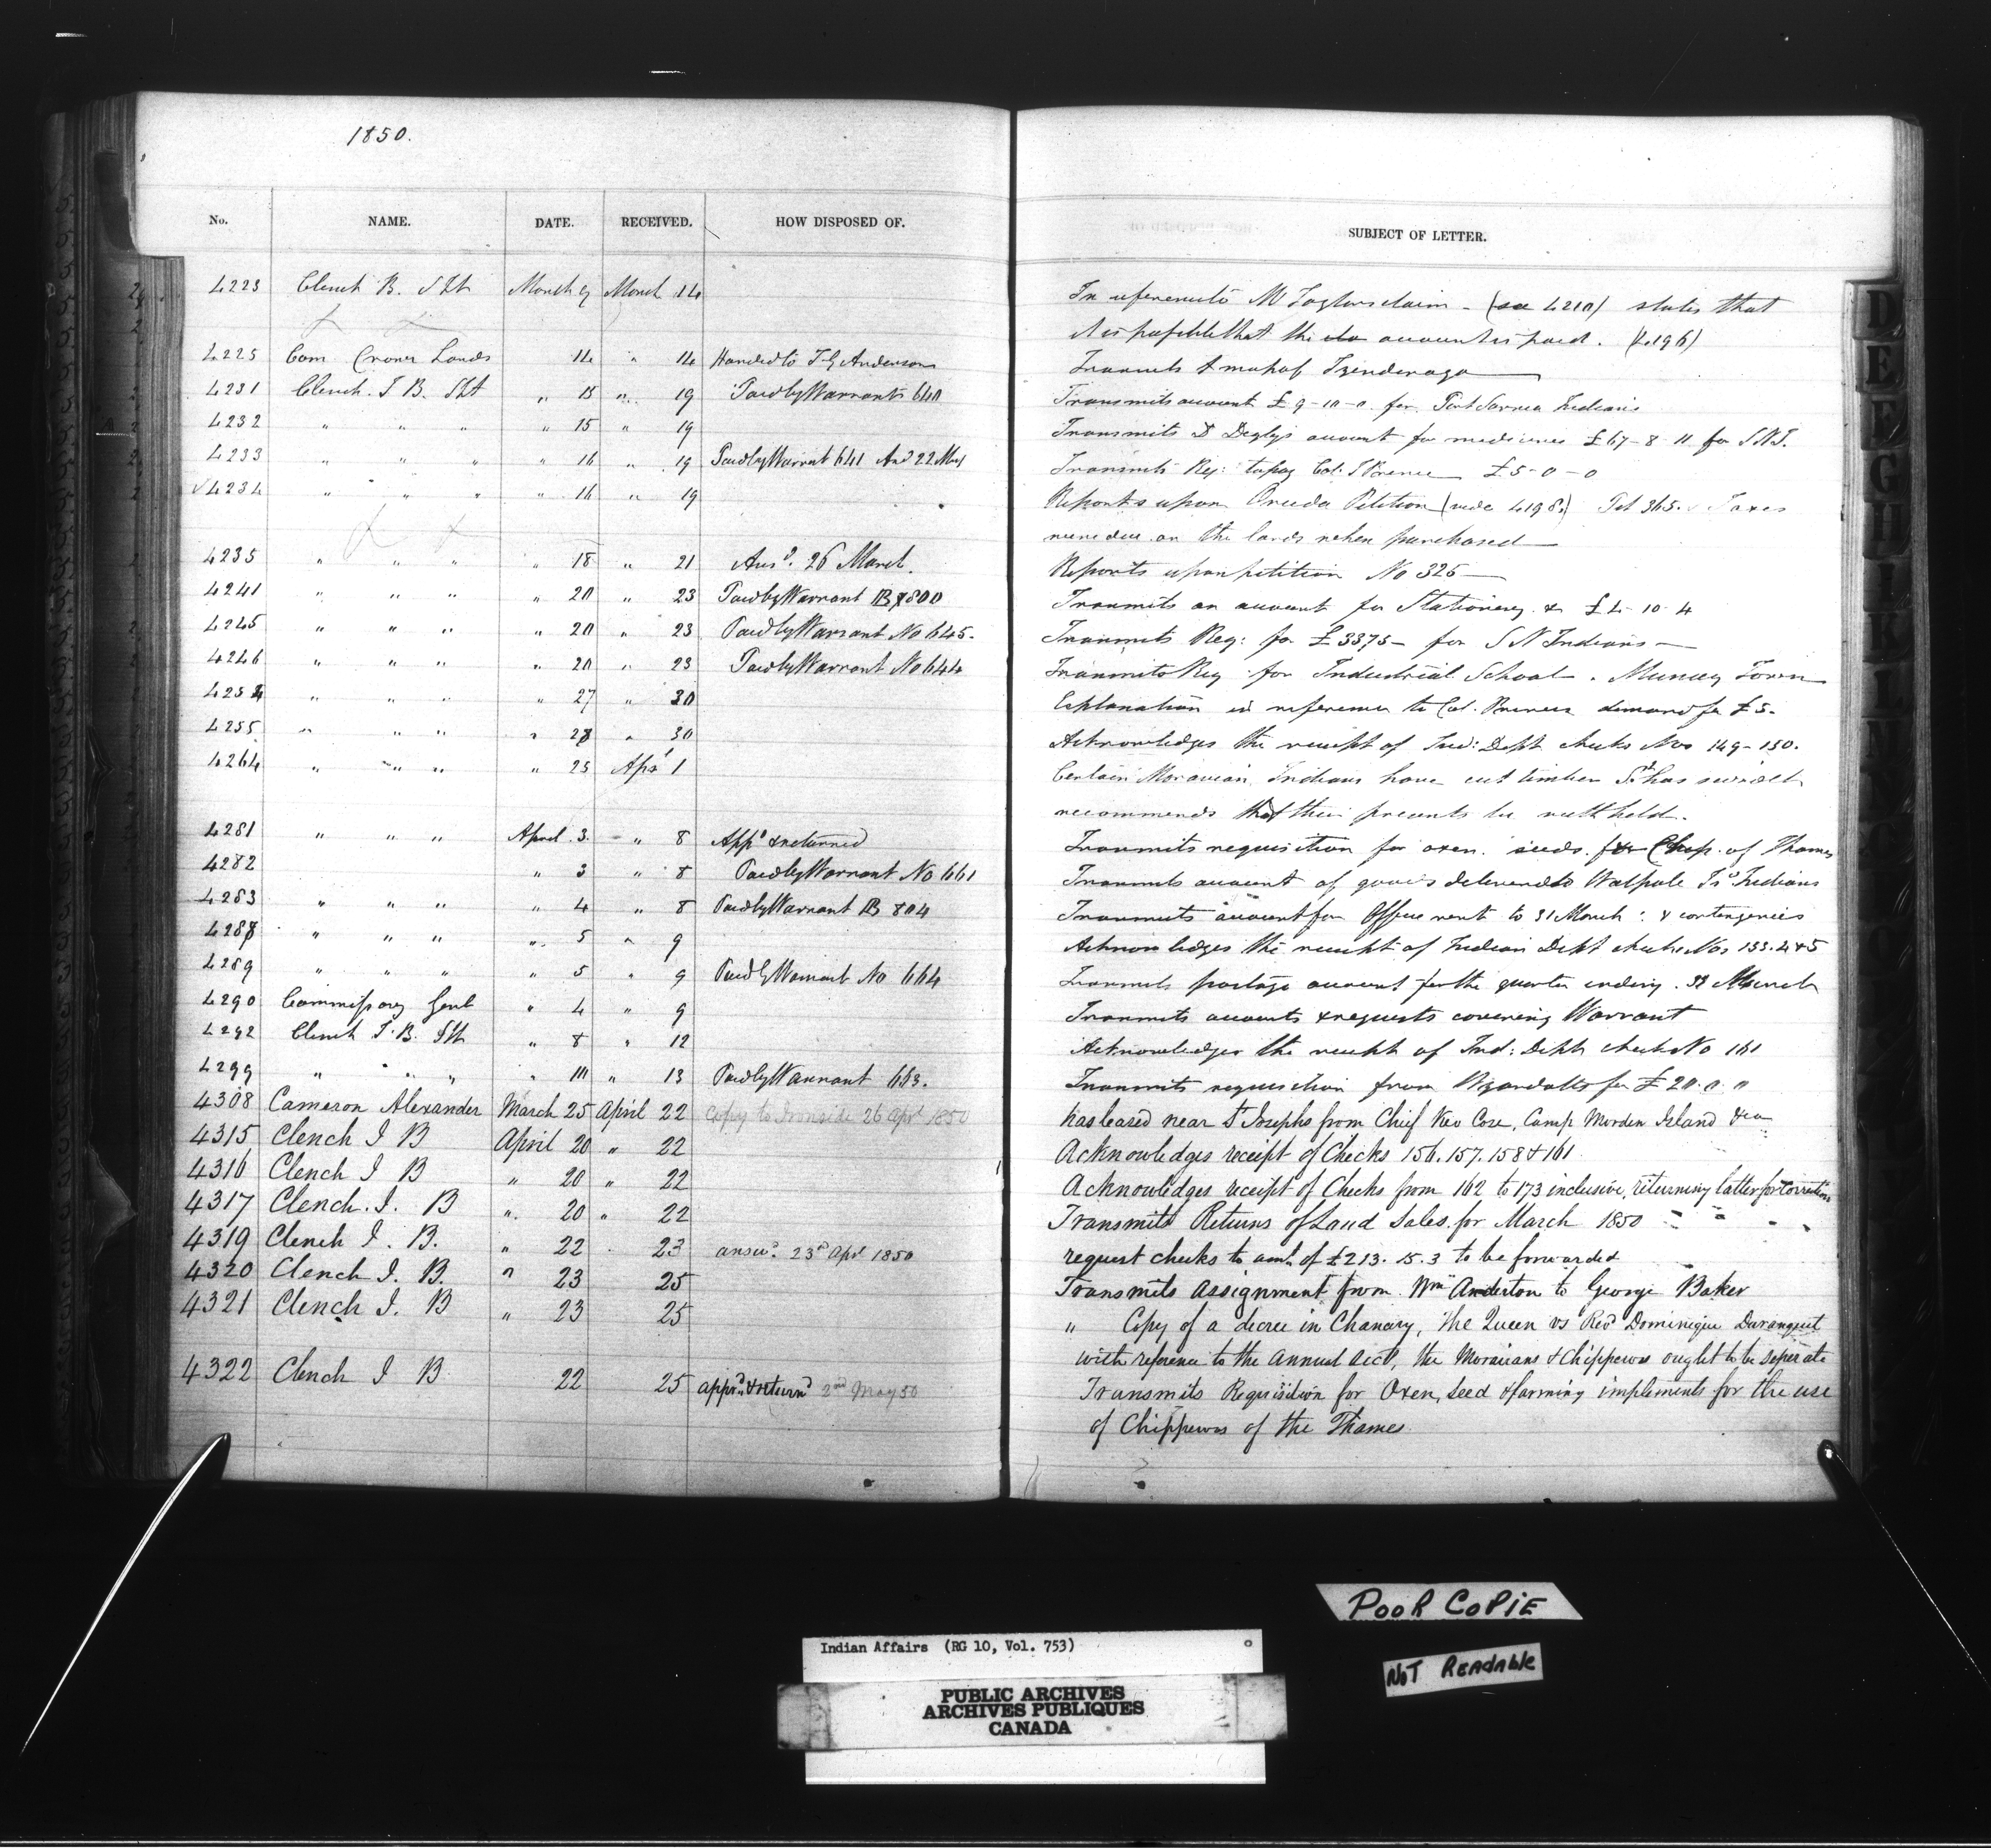 1850.
No. NAME. DATE. RECEIVED. HOW DISPOSED OF. SUBJECT OF LETTER.
4223 Clench B. Spt March 9 March 14 In reference to Mr Taylors claim - (see 4210) states that
it is possible that the account is paid. (4196)
4225 Com Crown Lands 14 " 14 Handed to T G Anderson Transmits a map of Tyendenaga
4231 Clench J B. Spt " 15 " 19 Paid by Warrants 640 Transmits account £9-10-0. for Port Sarnia Indians
4232 " " " " 15 " 19 Transmits Dr account for medicines £67-8-11 for S.N.I.
4233 " " " " 16 " 19 Paid by Warrant 641 And 22 May Transmits Req: to pay Col: Prince £5-0-0
4234 " " " " 16 " 19 Reports upon Oneida Petition (vide 4198.) Pet 365. Taxes
were due on the lands when purchased
4235 " " " " 18 " 21 Ansd. 26 March. Reports upon petition No 325
4241 " " " " 20 " 23 Paid by Warrant B 800 Transmits an account for Stationery & £4-10-4
4245 " " " " 20 " 23 Paid by Warrant No 645. Transmits Req: for £3375 - for S N Indians
4246 " " " " 20 " 23 Paid by Warrant No 644 Transmits Req for Industrial School. Muncey Town
4254 " " " " 27 " 30 Explanation in reference to Col. Princes demand for £5.
4255 " " " " 28 " 30 Acknowledges the receipt of Ind: Dept checks Nos 149-150.
4264 " " " " 25 Apl 1 Certain Moravian Indians have cut timber
recommends that their presents be withheld.
4281 " " " April 3. " 8 Appd & returned Transmits requisition for oxen. seeds. for Chip. of Thames
4282 " 3 " 8 Paid by Warrant No 661 Transmits account of goods delivered to Walpole Isd Indians
4283 " " " " 4 " 8 Paid by Warrant B 804 Transmits account for Office rent to 31 March: & contingencies
4288 " " " " 5 " 9 Acknowledges the receipt of Indian Dept checks Nos 153. 4 & 5
4289 " " " " 5 " 9 Paid by Warrant No 664 Transmits postage account for the quarter ending. 31 March
4290 Commissary Genl " 4 " 9 Transmits accounts & requests covering Warrant
4292 Clench J. B. Spt " 8 " 12 Acknowledges the receipt of Ind: Dept check No 161
4299 " " " " 10 " 13 Paid by Warrant 663. Transmits requisition from Wyandotts for £20.0.0
4308 Cameron Alexander March 25 April 22 Copy to Ironside 26 Apl 1850 has leased near St Josephs from Chief Camp Morden Island &ca
4315 Clench J B April 20 " 22 Acknowledges receipt of Checks 156. 157. 158 & 161
4316 Clench J B " 20 " 22 Acknowledges receipt of Checks from 162 to 173 inclusive, returning latter for correction
4317 Clench. J. B " 20 " 22 Transmits Returns of Land Sales for March 1850
4319 Clench J. B. " 22 " 23 answd. 23d Apl 1850 request checks to amt. of £213. 15. 3 to be forwarded
4320 Clench J. B. " 23 25 Transmits Assignment from Wm Anderton to George Baker
4321 Clench J. B " 23 25 " Copy of a decree in Chancery, The Queen vs Revd Dominique Duranquet
with reference to the Annual Acct, the Moravians & Chippewas ought to be seperate
4322 Clench J B 22 25 appd. & returnd 2nd May 50 Transmits Requisition for Oxen, Seed & farming implements for the use
of Chippewas of the Thames
D
E
F
G
H
I
K
L
POOR COPIE
NOT READABLE
Indian Affairs (RG 10, Vol. 753)
PUBLIC ARCHIVES
ARCHIVES PUBLIQUES
CANADA